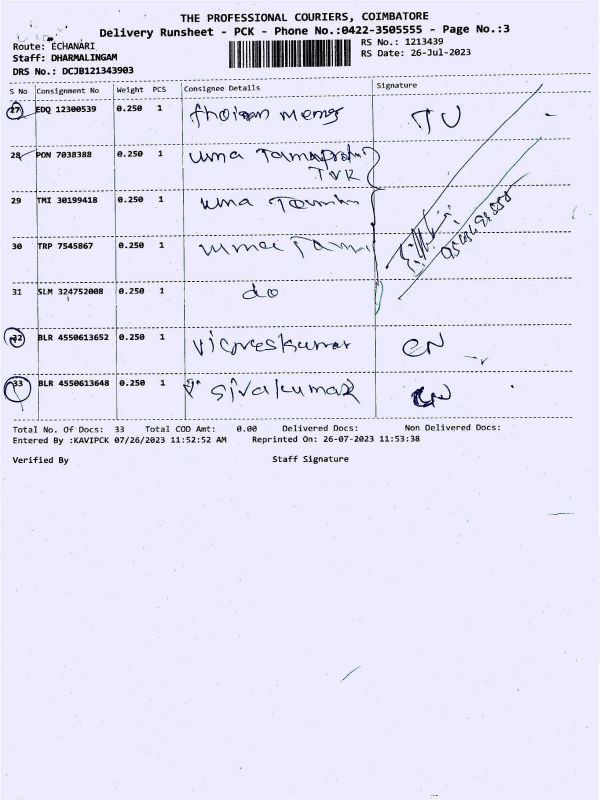 THE PROFESSIONAL COURIERS, COIMBATORE
Delivery Runsheet - PCK - Phone No.:0422-3505555 - Page No.:3
Route: ECHANARI
RS No.: 1213439
Staff: DHARMALINGAM
RS Date: 26-Jul-2023
DRS No.: DCJB121343903
S No Consignment No Weight PCS Consignee Details Signature
27 EDQ 12300539 0.250 1 TU
28 PON 7038388 0.250 1 uma
TVR
29 TMI 30199418 0.250 1 uma
30 TRP 7545867 0.250 1
31 SLM 324752008 0.250 1 do
32 BLR 4550613652 0.250 1 Vigneshkumar CN
33 BLR 4550613648 0.250 1 Sivakumar CN
Total No. Of Docs: 33 Total COD Amt: 0.00 Delivered Docs: Non Delivered Docs:
Entered By :KAVIPCK 07/26/2023 11:52:52 AM Reprinted On: 26-07-2023 11:53:38
Verified By Staff Signature